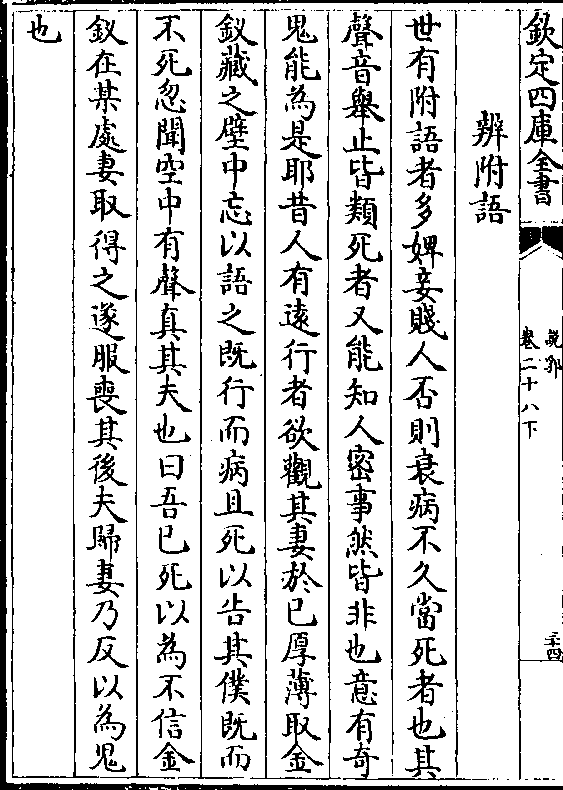 欽定四庫全書
說郛
卷二十八下
三十四
辨附語
世有附語者多婢妾賤人否則衰病不久當死者也其
聲音舉止皆類死者又能知人密事然皆非也意有奇
鬼能為是耶昔人有遠行者欲觀其妻於己厚薄取金
釵藏之壁中忘以語之既行而病且死以告其僕既而
不死忽聞空中有聲真其夫也曰吾已死以為不信金
釵在某處妻取得之遂服喪其後夫歸妻乃反以為鬼
也